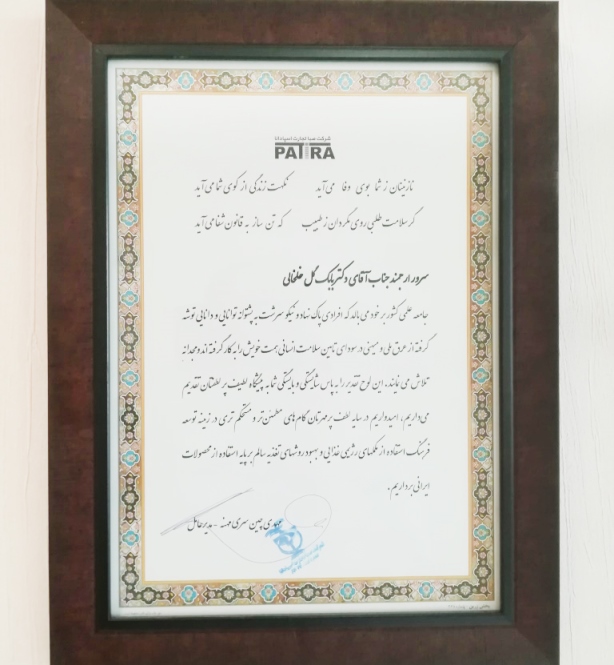 شرکت صبا تجارت اسپندانا
PATIRA
نازنینان ز شما بوی وفا می‌آید نکهت زندگی از کوی شما می‌آید
گر سلامت طلبی روی مگردان ز طبیب که تن ساز به قانون شفا می‌آید
سرور ارجمند جناب آقای دکتر بابک گل خلخالی
جامعه علمی کشور بر خود می بالد که افرادی پاک نهاد و نیکو سرشت به پشتوانه توانایی و دانایی توشه
گرفته از عرق ملی و میهنی در سودای تامین سلامت انسانی همت خویش را به کار گرفته اند و مجدانه
تلاش می نمایند. این لوح تقدیر را به پاس شایستگی و بایستگی شما به پیشگاه لطیف پر لطفتان تقدیم
می‌داریم، امیدواریم در سایه لطف پر مهرتان گام های مطمئن تر و مستحکم تری در زمینه توسعه
فرهنگ استفاده از مکملهای رژیمی غذایی و بهبود روشهای تغذیه سالم بر پایه استفاده از محصولات
ایرانی برداریم.
مهدی چین سری - مدیر عامل